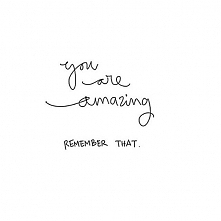 you
are
amazing
REMEMBER THAT.